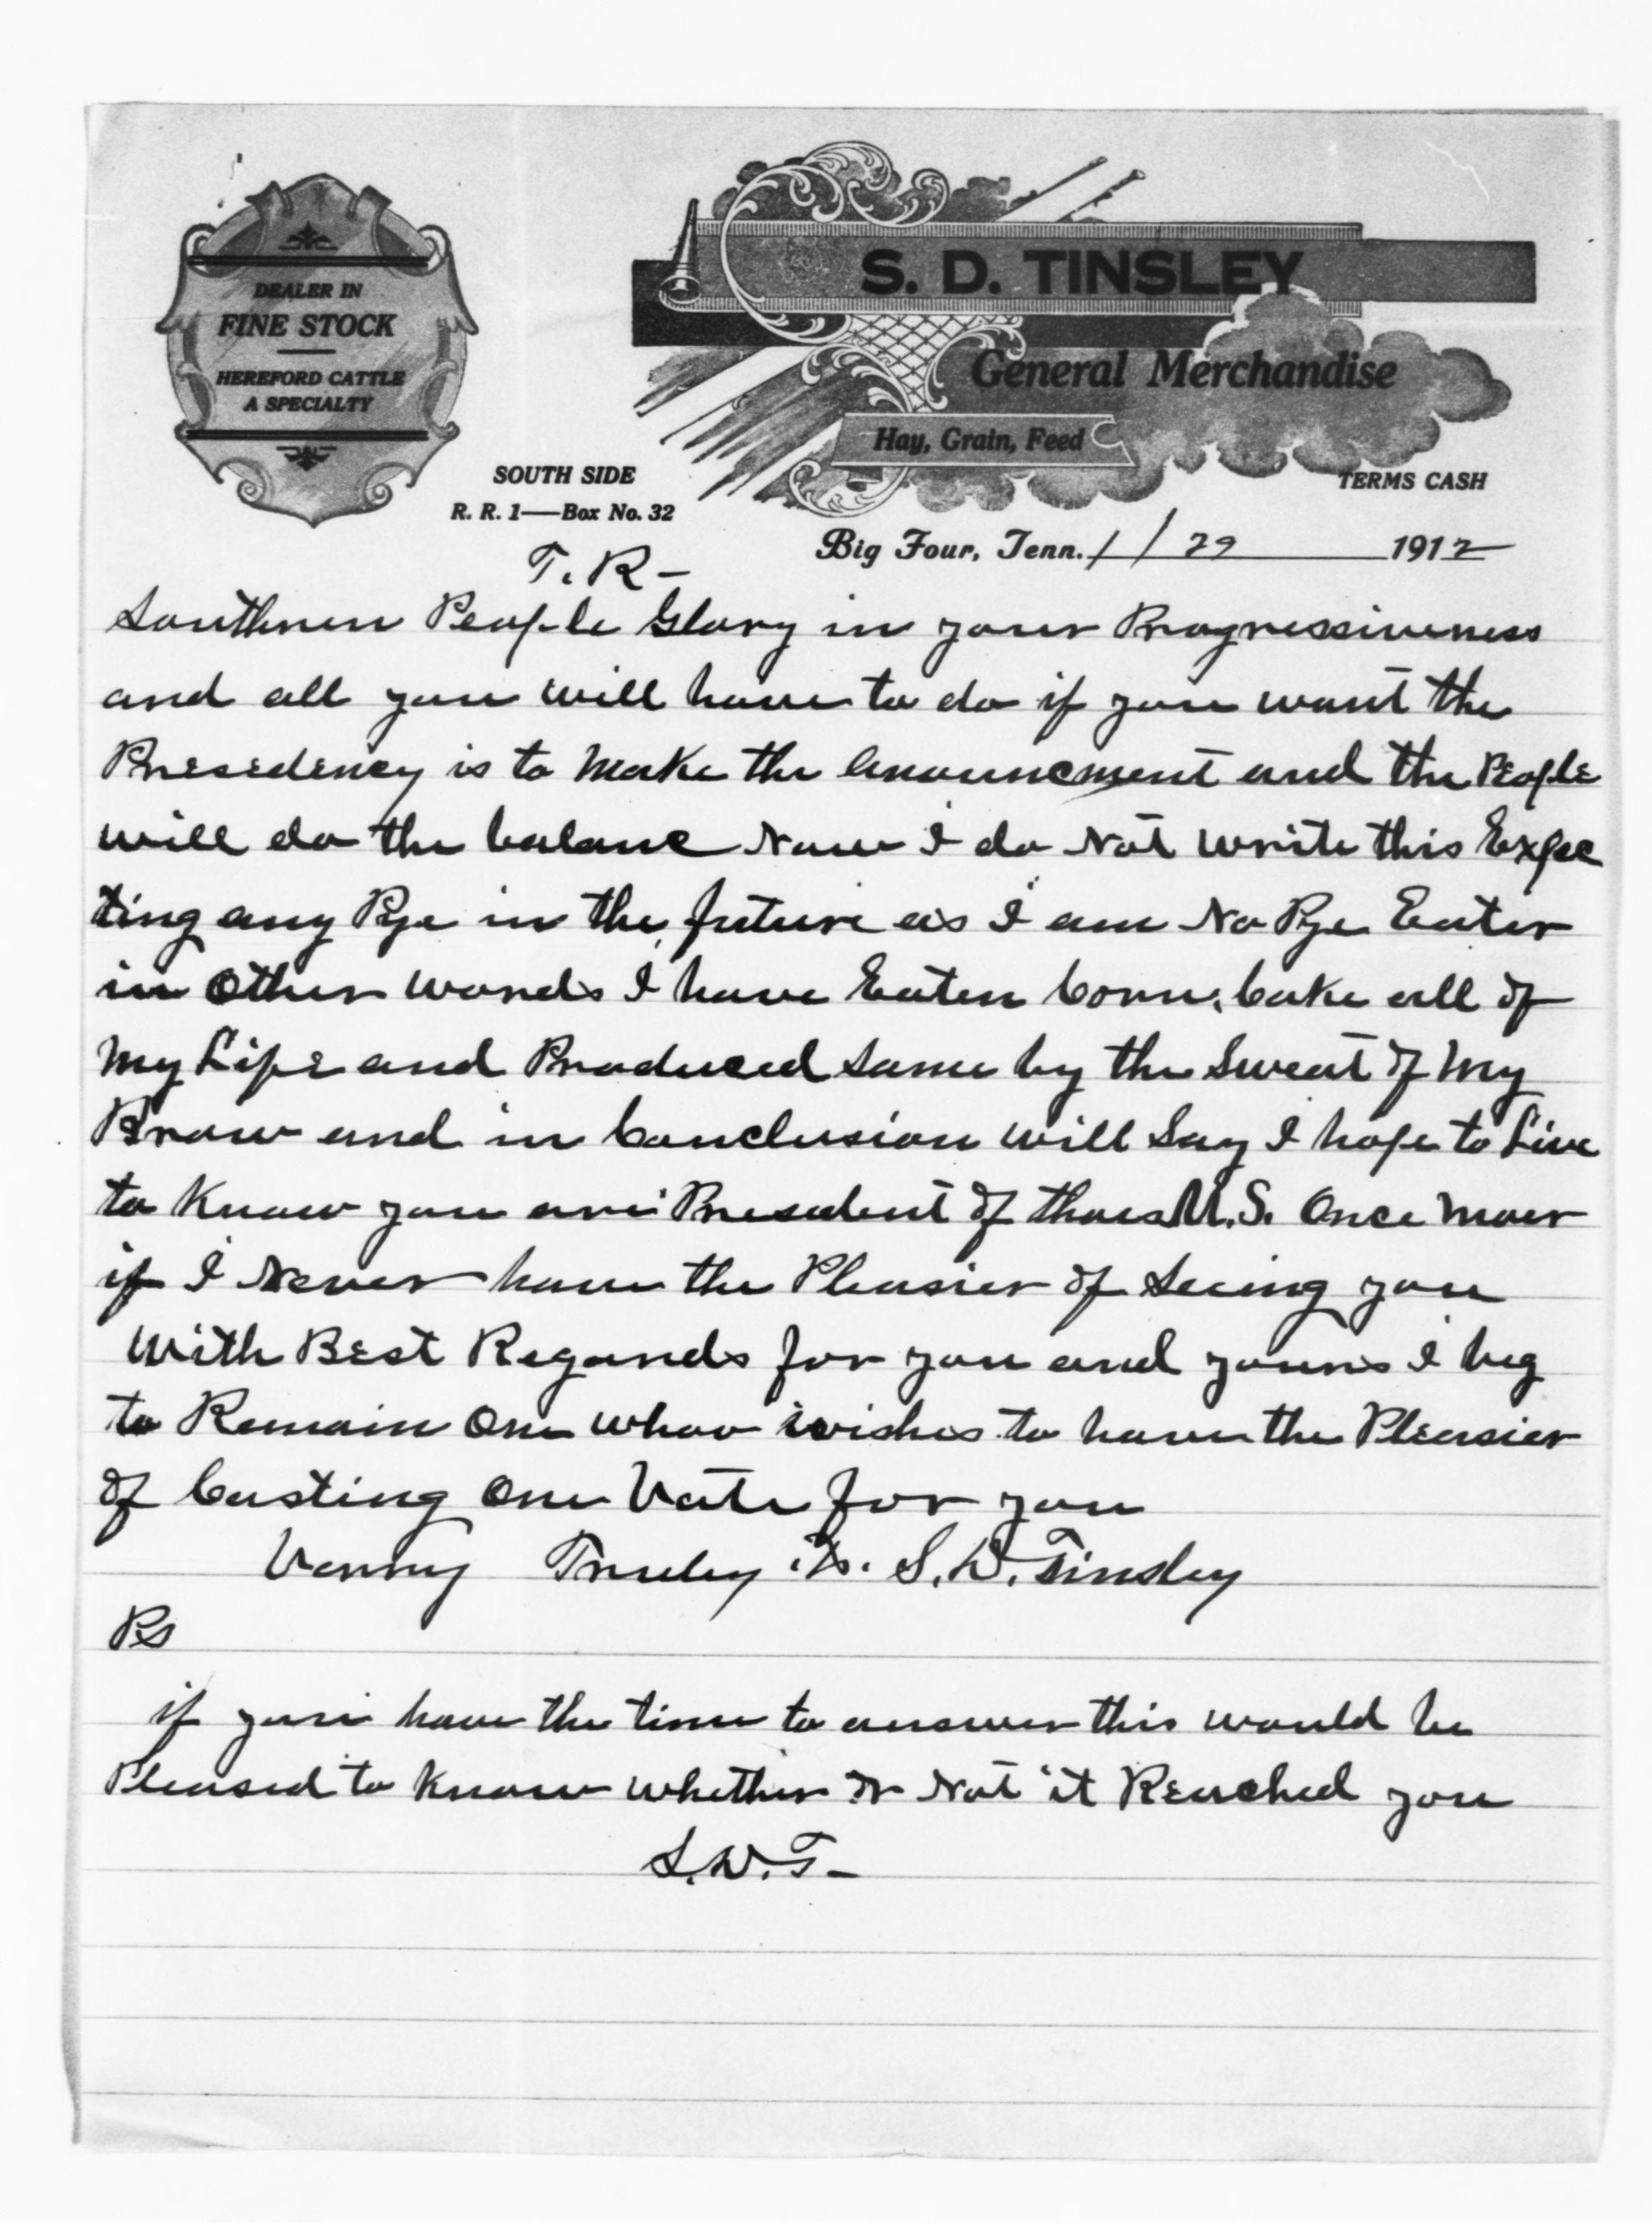 DEALER IN
FINE STOCK
HEREFORD CATTLE
A SPECIALTY
S. D. TINSLEY
General Merchandise
Hay, Grain, Feed
SOUTH SIDE
R. R. 1—Box No. 32
TERMS CASH
Big Four, Tenn. 1/29 1912
T. R—
Southnen People Glory in your Progressiveness
and all you will have to do if you want the
Presedency is to Make the Anouncment and the People
will do the balance Now I do Not write this Expec
ting any Pye in the future as I am No Pye Eater
in Other words I have Eaten Corn, Cake all of
My Life and Produced same by the Sweat of My
Brow and in Conclusion will Say I hope to Live
to Know you are President of U.S. Once Moer
if I Never have the Pleasier of Seeing you
With Best Regards for you and yours I beg
to Remain One whoo wishes to have the Pleasier
of Casting One Vote for you
Verry Truley S. D. Tinsley
Ps
if you have the time to answer this would be
Pleased to Know whether or Not it Reached you
S. D. T—